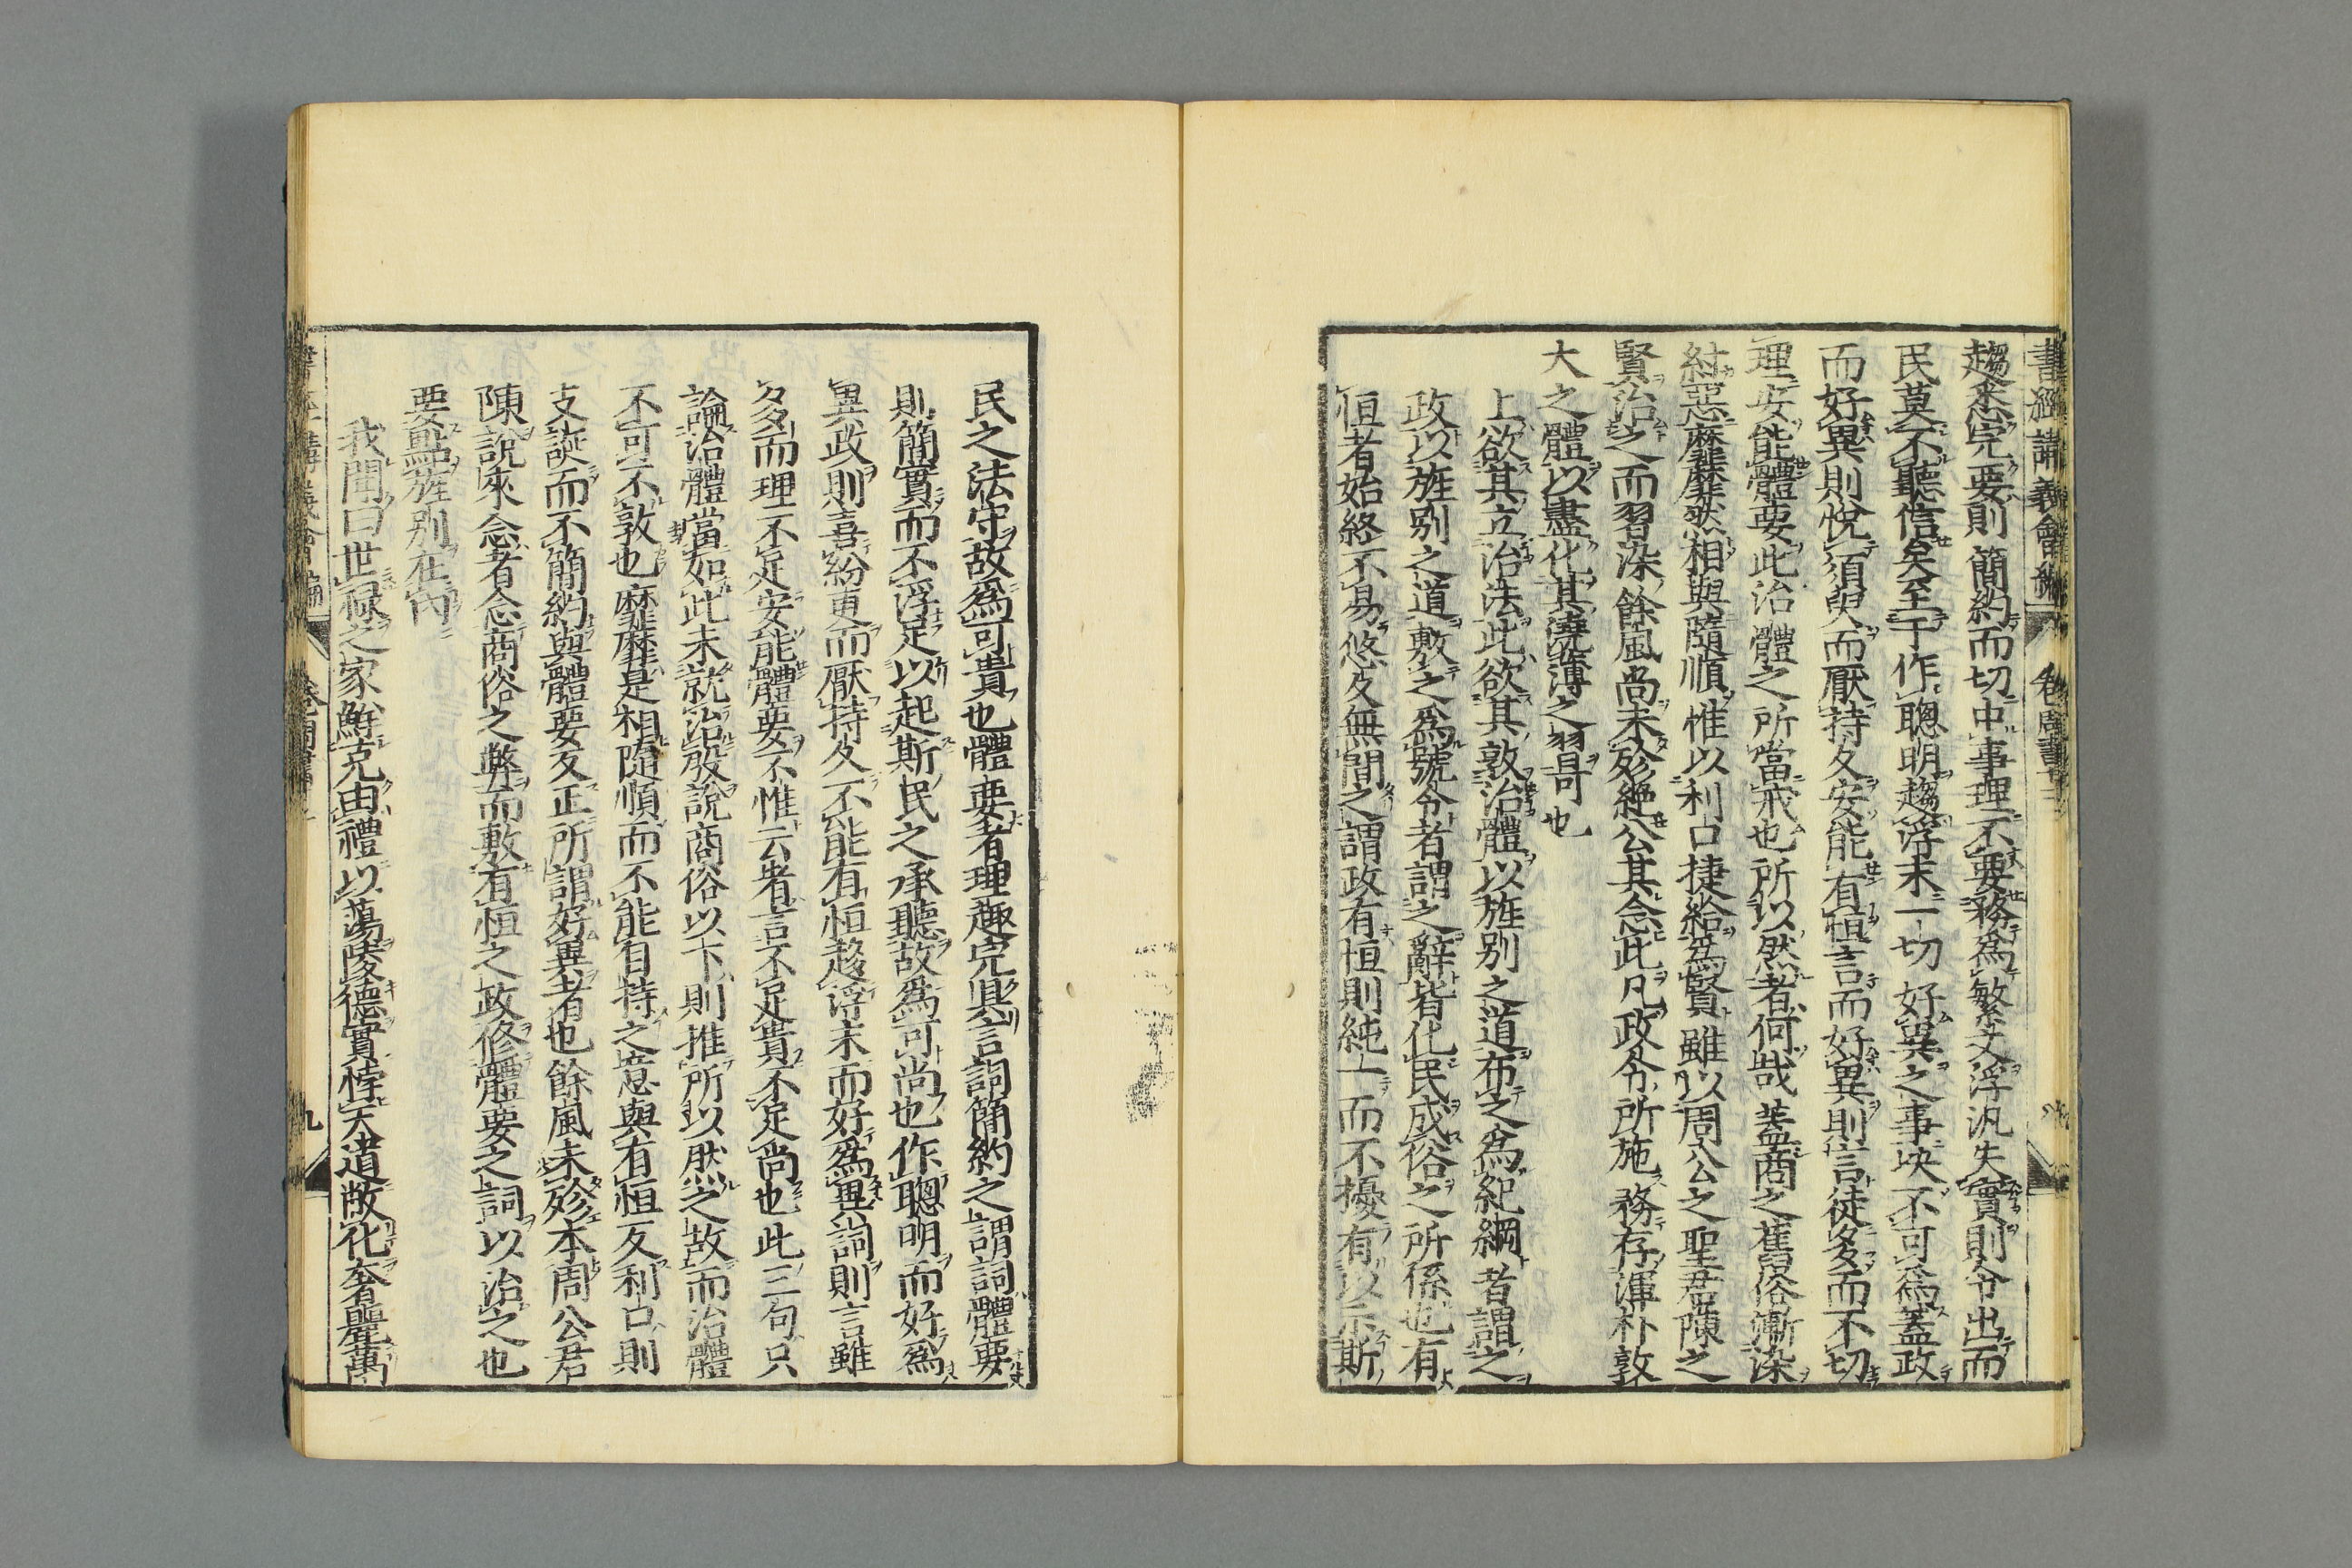 書經講義會編 卷 周書
趨柰完要則簡約而切中事理不要務爲繁文浮汎失實則令出而
民莫不聽信矣至于作聰明趨浮末一切好異之事決不可爲蓋政
而好異則悅須臾而厭持久安能有恒言而好異則言徒多而不切
理安能體要此治體之所當戒也所以然者何哉蓋商之舊俗漸染
紂惡靡靡然相與隨順惟以利口捷給爲賢雖以周公之聖君陳之
賢治之而習染餘風尚未殄絶公其念此凡政令所施務存渾朴敦
大之體以盡化其澆薄之習可也
上欲其立治法此欲其敦治體以旌別之道布之爲紀綱者謂之
政以旌别之道敷之爲號令者謂之辭皆化民成俗之所係也有
恒者始終不易悠久無間之謂政有恒則純一而不擾有以示斯
民之法守故爲可貴也體要者理趣完具言詞簡約之謂詞體要
則簡實而不浮足以起斯民之承聽故爲可尚也作聰明而好爲
異政則喜紛更而厭持久不能有恒趨浮末而好爲異詞則言雖
多而理不足安能體要不惟云者言不足貴不足尚也此三句只
論治體當如此未就治殷說商俗以下則推所以然之故而治體
不可不敦也靡靡是相隨順而不能自持之意與有恒反利口則
支誕而不簡約與體要反正所謂好異者也餘風未殄本周公君
陳說來念者念商俗之弊而敷有恒之政修體要之詞以治之也
要點旌别在內
我聞曰世祿之家鮮克由禮以蕩陵德實悖天道敝化奢麗萬
書經講義會編 卷 周書 九